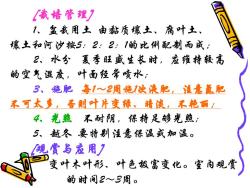 [栽培管理]
1、盆栽用土 由黏质壤土、腐叶土、
壤土和河沙按5:2:2:1的比例配制而成;
2、水分 夏季旺盛生长时,应维持较高
的空气湿度,叶面经常喷水;
3、施肥 每1~2周施1次液肥,注意氮肥
不可太多,否则叶片变绿、暗淡,不艳丽;
4、光照 不耐阴,保持足够光照;
5、越冬 要特别注意保温或加温。
[观赏与应用]
变叶木叶形、叶色极富变化。室内观赏
的时间2~3周。